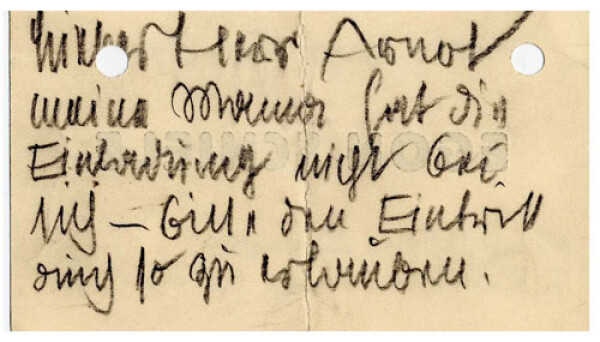 Lieber Herr Arnot
meine Mama hat die
Einladung nicht bei
sich – bitte den Eintritt
auch so zu erlauben.